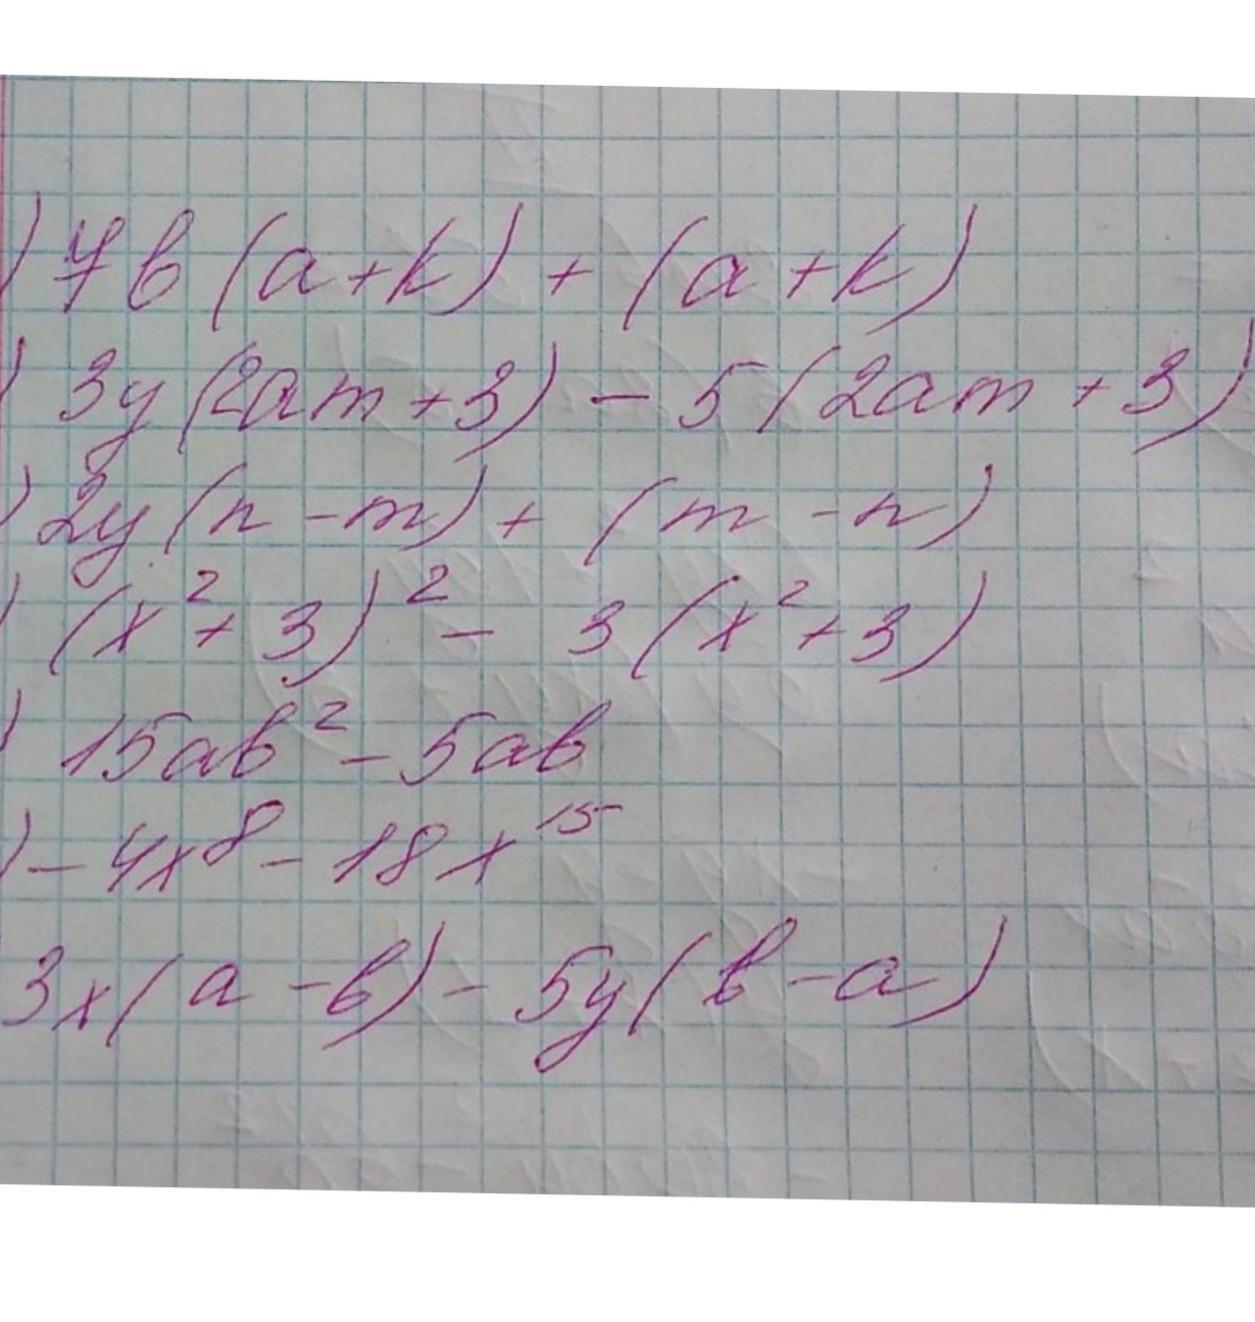 ) 7b(a+k) + (a+k)
) 3y(2am+3) - 5(2am+3)
) 2y(n-m) + (m-n)
) (x²+3)² - 3(x²+3)
) 15ab² - 5ab
) -4x⁸ - 18x¹⁵
3x(a-b) - 5y(b-a)